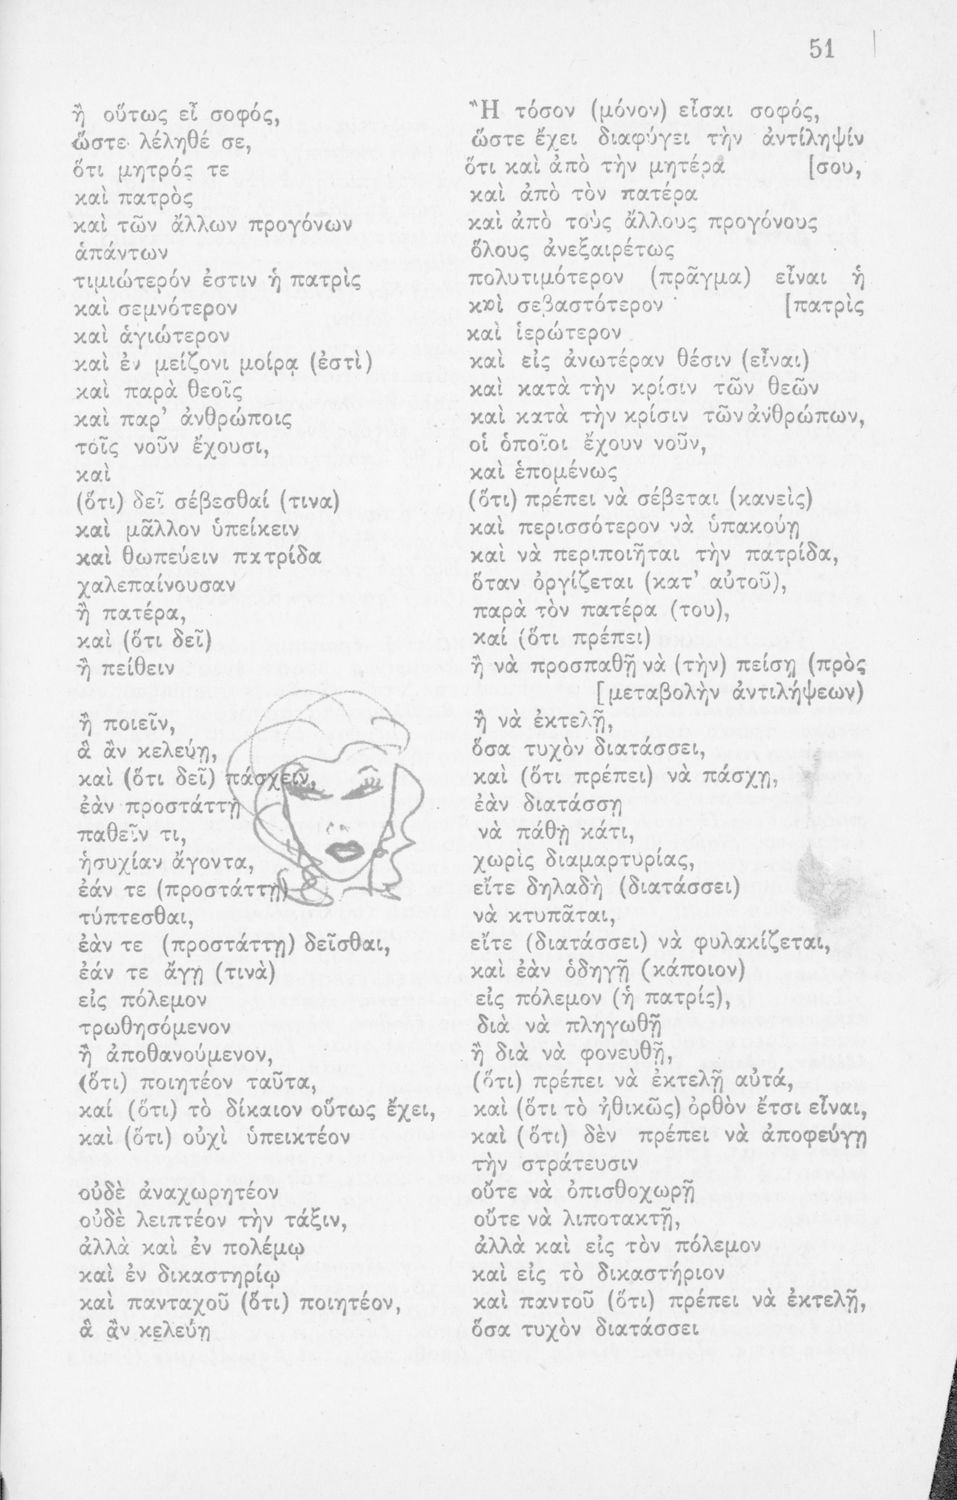 51
ἢ οὕτως εἶ σοφός,
ὥστε λέληθέ σε,
ὅτι μητρός τε
καὶ πατρὸς
καὶ τῶν ἄλλων προγόνων
ἁπάντων
τιμιώτερόν ἐστιν ἡ πατρὶς
καὶ σεμνότερον
καὶ ἁγιώτερον
καὶ ἐν μείζονι μοίρᾳ (ἐστὶ)
καὶ παρὰ θεοῖς
καὶ παρ’ ἀνθρώποις
τοῖς νοῦν ἔχουσι,
καὶ
(ὅτι) δεῖ σέβεσθαί (τινα)
καὶ μᾶλλον ὑπείκειν
καὶ θωπεύειν πατρίδα
χαλεπαίνουσαν
ἢ πατέρα,
καὶ (ὅτι δεῖ)
ἢ πείθειν
ἢ ποιεῖν,
ἃ ἂν κελεύῃ,
καὶ (ὅτι δεῖ) πάσχειν,
ἐὰν προστάττῃ
παθεῖν τι,
ἡσυχίαν ἄγοντα,
ἐάν τε (προστάττῃ)
τύπτεσθαι,
ἐὰν τε (προστάττῃ) δεῖσθαι,
ἐάν τε ἄγῃ (τινὰ)
εἰς πόλεμον
τρωθησόμενον
ἢ ἀποθανούμενον,
(ὅτι) ποιητέον ταῦτα,
καί (ὅτι) τὸ δίκαιον οὕτως ἔχει,
καὶ (ὅτι) οὐχὶ ὑπεικτέον
οὐδὲ ἀναχωρητέον
οὐδὲ λειπτέον τὴν τάξιν,
ἀλλὰ καὶ ἐν πολέμῳ
καὶ ἐν δικαστηρίῳ
καὶ πανταχοῦ (ὅτι) ποιητέον,
ἃ ἂν κελεύῃ
Ἢ τόσον (μόνον) εἶσαι σοφός,
ὥστε ἔχει διαφύγει τὴν ἀντίληψίν
ὅτι καὶ ἀπὸ τὴν μητέρα [σου,
καὶ ἀπὸ τὸν πατέρα
καὶ ἀπὸ τοὺς ἄλλους προγόνους
ὅλους ἀνεξαιρέτως
πολυτιμότερον (πρᾶγμα) εἶναι ἡ
καὶ σεβαστότερον [πατρὶς
καὶ ἱερώτερον
καὶ εἰς ἀνωτέραν θέσιν (εἶναι)
καὶ κατὰ τὴν κρίσιν τῶν θεῶν
καὶ κατὰ τὴν κρίσιν τῶν ἀνθρώπων,
οἱ ὁποῖοι ἔχουν νοῦν,
καὶ ἑπομένως
(ὅτι) πρέπει νὰ σέβεται (κανεὶς)
καὶ περισσότερον νὰ ὑπακούῃ
καὶ νὰ περιποιῆται τὴν πατρίδα,
ὅταν ὀργίζεται (κατ’ αὐτοῦ),
παρὰ τὸν πατέρα (του),
καί (ὅτι πρέπει)
ἢ νὰ προσπαθῇ νὰ (τὴν) πείσῃ (πρὸς
[μεταβολὴν ἀντιλήψεων)
ἢ νὰ ἐκτελῇ,
ὅσα τυχὸν διατάσσει,
καὶ (ὅτι πρέπει) νὰ πάσχῃ,
ἐὰν διατάσσῃ
νὰ πάθῃ κάτι,
χωρὶς διαμαρτυρίας,
εἴτε δηλαδὴ (διατάσσει)
νὰ κτυπᾶται,
εἴτε (διατάσσει) νὰ φυλακίζεται,
καὶ ἐὰν ὁδηγῇ (κάποιον)
εἰς πόλεμον (ἡ πατρίς),
διὰ νὰ πληγωθῇ
ἢ διὰ νὰ φονευθῇ,
(ὅτι) πρέπει νὰ ἐκτελῇ αὐτά,
καὶ (ὅτι τὸ ἠθικῶς) ὀρθὸν ἔτσι εἶναι,
καὶ (ὅτι) δὲν πρέπει νὰ ἀποφεύγῃ
τὴν στράτευσιν
οὔτε νὰ ὀπισθοχωρῇ
οὔτε νὰ λιποτακτῇ,
ἀλλὰ καὶ εἰς τὸν πόλεμον
καὶ εἰς τὸ δικαστήριον
καὶ παντοῦ (ὅτι) πρέπει νὰ ἐκτελῇ,
ὅσα τυχὸν διατάσσει